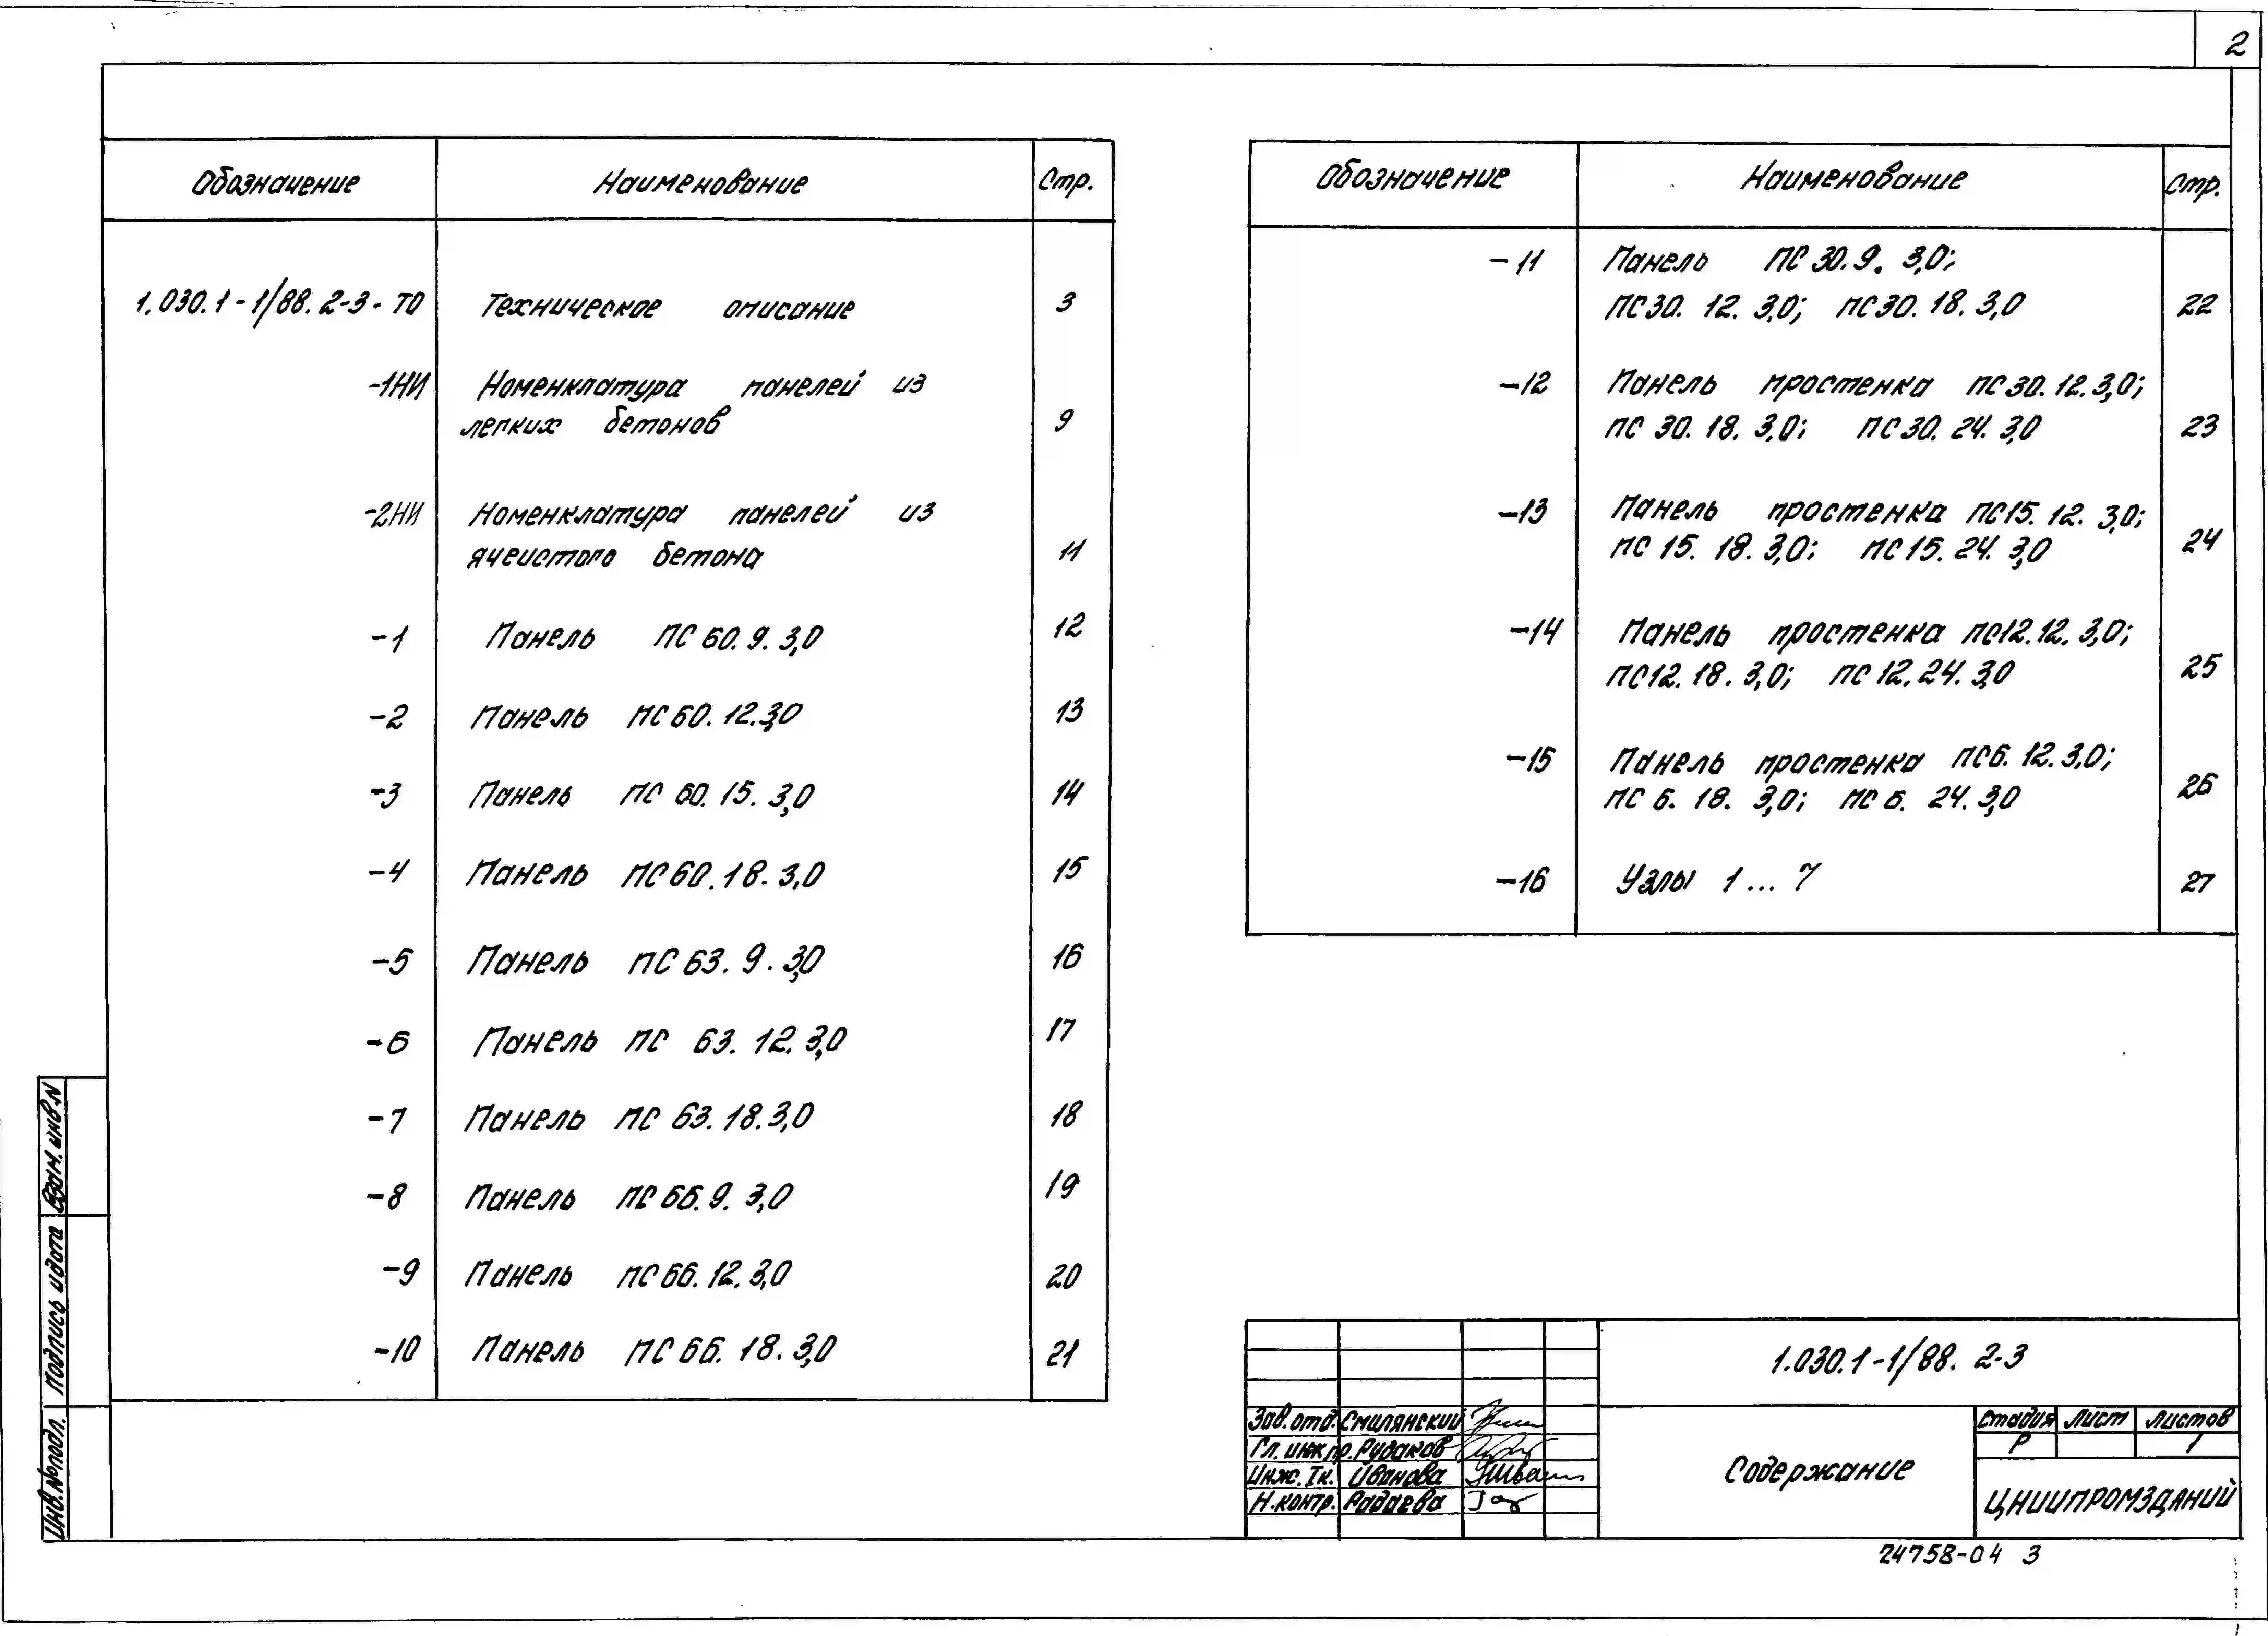 2
Обозначение Наименование Стр.
1.030.1-1/88.2-3-ТО Техническое описание 3
-1НИ Номенклатура панелей из
легких бетонов 9
-2НИ Номенклатура панелей из
ячеистого бетона 11
-1 Панель ПС 60.9.3,0 12
-2 Панель ПС 60.12.3,0 13
-3 Панель ПС 60.15.3,0 14
-4 Панель ПС 60.18.3,0 15
-5 Панель ПС 63.9.3,0 16
-6 Панель ПС 63.12.3,0 17
-7 Панель ПС 63.18.3,0 18
-8 Панель ПС 66.9.3,0 19
-9 Панель ПС 66.12.3,0 20
-10 Панель ПС 66.18.3,0 21
Обозначение Наименование Стр.
-11 Панель ПС 30.9.3,0;
ПС30.12.3,0; ПС30.18.3,0 22
-12 Панель простенка ПС30.12.3,0;
ПС 30.18.3,0; ПС30.24.3,0 23
-13 Панель простенка ПС15.12.3,0;
ПС 15.18.3,0; ПС15.24.3,0 24
-14 Панель простенка ПС12.12.3,0;
ПС12.18.3,0; ПС 12.24.3,0 25
-15 Панель простенка ПС6.12.3,0;
ПС 6.18.3,0; ПС 6.24.3,0 26
-16 Узлы 1...7 27
Инв.№подл. Подпись и дата Взам.инв.N
1.030.1-1/88. 2-3
Зав.отд. Смилянский
Гл.инж.пр. Рудаков
Инж.Iк. Иванова
Н.контр. Радаева
Содержание
Стадия Лист Листов
Р 1
ЦНИИПРОМЗДАНИЙ
24758-04 3